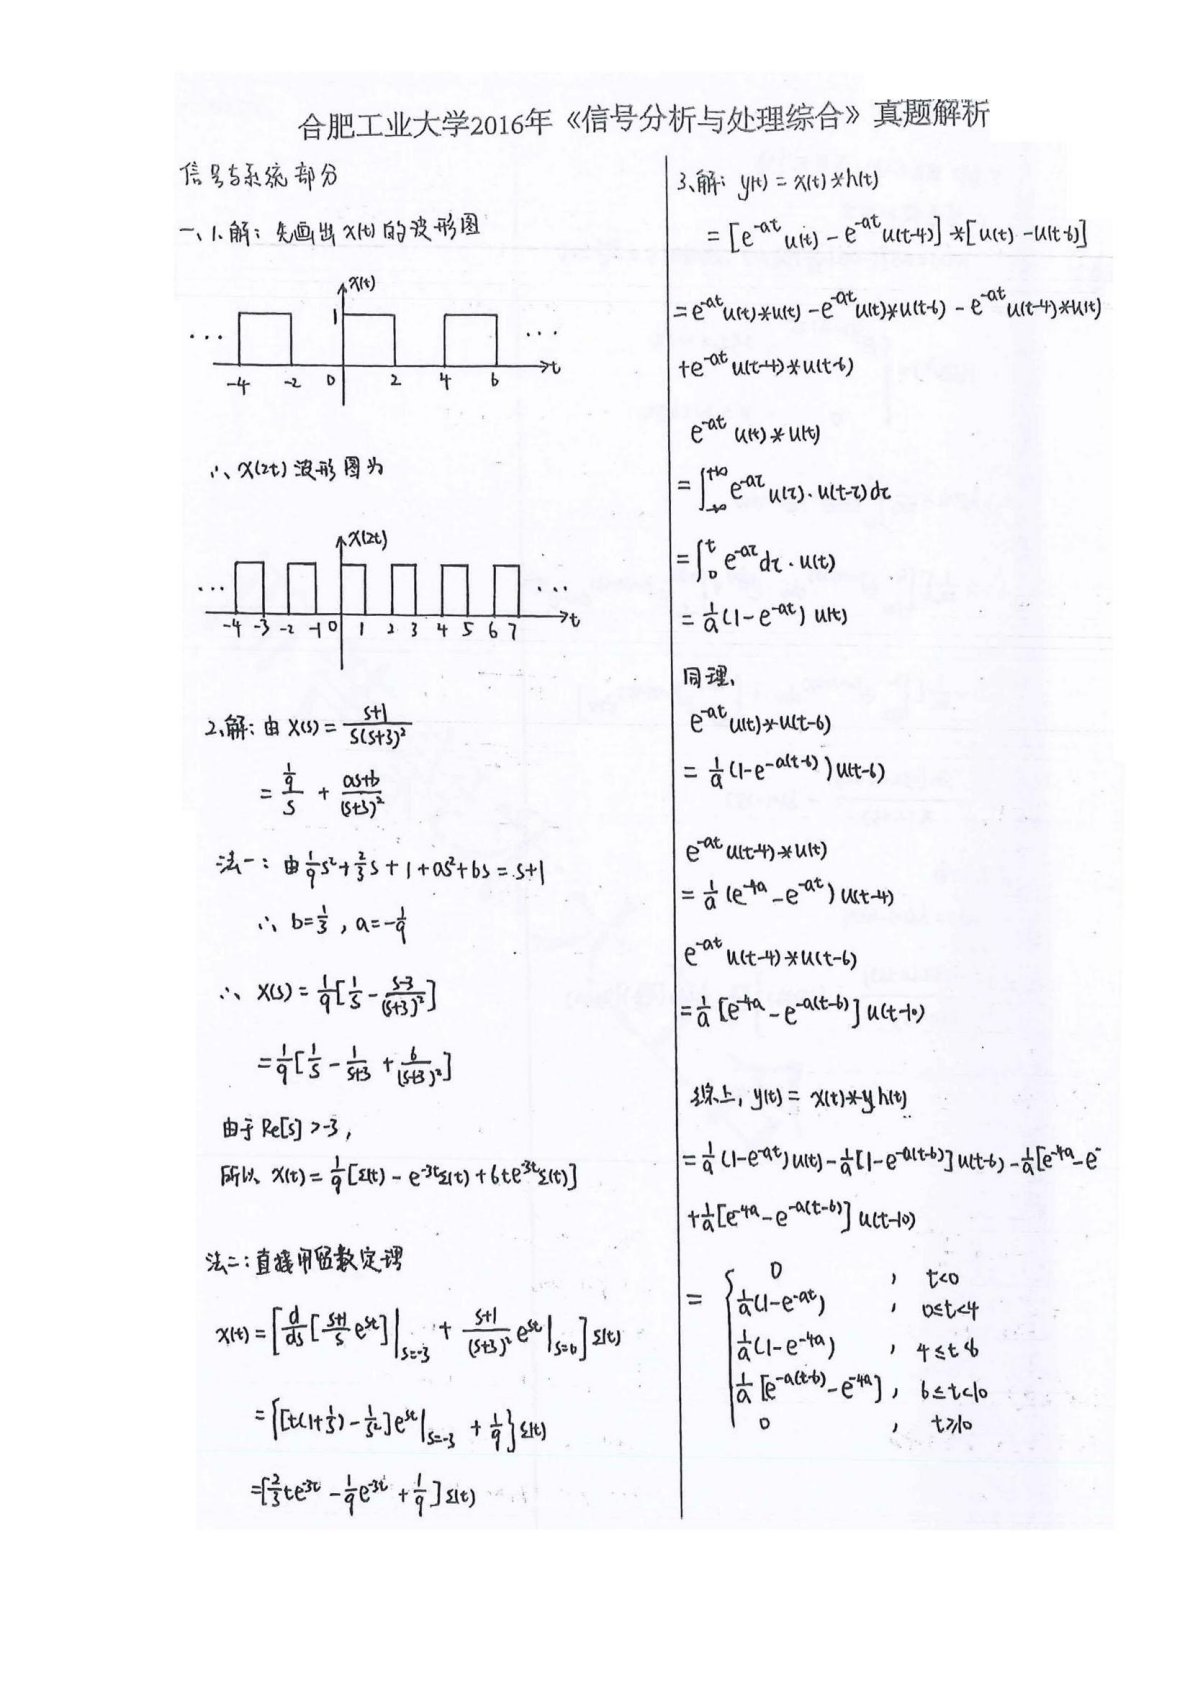 合肥工业大学2016年《信号分析与处理综合》真题解析
信号与系统部分
一、1.解：先画出x(t)的波形图
x(t)
1
... ...
-4 -2 0 2 4 6 t
∴ x(2t)波形图为
x(2t)
... ...
-4 -3 -2 -1 0 1 2 3 4 5 6 7 t
2.解：由 X(s) = (s+1)/(s(s+3)²)
= (1/9)/s + (as+b)/(s+3)²
法一：由 1/9 s² + 2/3 s + 1 + as² + bs = s+1
∴ b=1/3 , a=-1/9
∴ X(s) = 1/9 [1/s - (s-3)/(s+3)²]
= 1/9 [1/s - 1/(s+3) + 6/(s+3)²]
由于 Re[s] > -3,
所以 x(t) = 1/9 [ε(t) - e^{-3t}ε(t) + 6te^{-3t}ε(t)]
法二：直接用留数定理
x(t) = [d/ds [(s+1)/s e^{st}]|_{s=-3} + (s+1)/(s+3)² e^{st}|_{s=0}] ε(t)
= {[t(1+1/s) - 1/s²]e^{st}|_{s=-3} + 1/9} ε(t)
= [2/3 te^{-3t} - 1/9 e^{-3t} + 1/9] ε(t)
3.解：y(t) = x(t)*h(t)
= [e^{-at}u(t) - e^{-at}u(t-4)] * [u(t) - u(t-6)]
= e^{-at}u(t)*u(t) - e^{-at}u(t)*u(t-6) - e^{-at}u(t-4)*u(t)
+ e^{-at}u(t-4)*u(t-6)
e^{-at} u(t)*u(t)
= ∫_{-∞}^{+∞} e^{-aτ} u(τ)·u(t-τ)dτ
= ∫_0^t e^{-aτ}dτ · u(t)
= 1/a (1-e^{-at}) u(t)
同理，
e^{-at}u(t)*u(t-6)
= 1/a (1-e^{-a(t-6)})u(t-6)
e^{-at}u(t-4)*u(t)
= 1/a (e^{-4a} - e^{-at}) u(t-4)
e^{-at}u(t-4)*u(t-6)
= 1/a [e^{-4a} - e^{-a(t-6)}] u(t-10)
综上，y(t) = x(t)*y h(t)
= 1/a (1-e^{-at})u(t) - 1/a [1-e^{-a(t-6)}]u(t-6) - 1/a [e^{-4a} - e^-
+ 1/a [e^{-4a} - e^{-a(t-6)}] u(t-10)
= { 0 , t<0
1/a (1-e^{-at}) , 0≤t<4
1/a (1-e^{-4a}) , 4≤t<6
1/a [e^{-a(t-6)} - e^{-4a}] , 6≤t<10
0 , t≥10